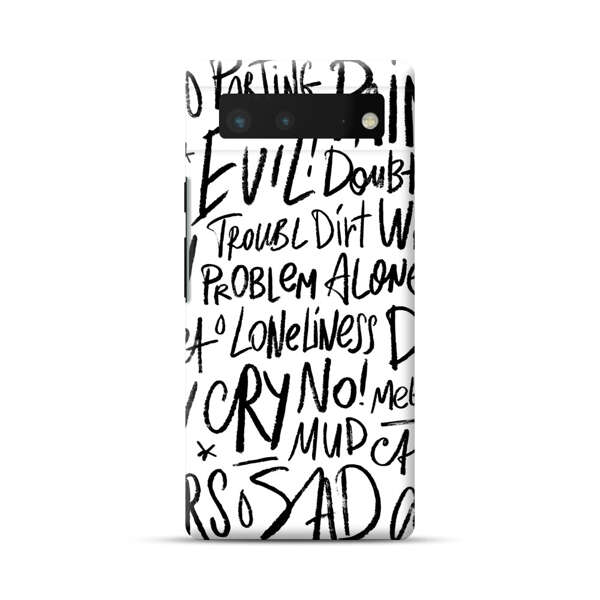 PARTING PAIN
EVIL! Doubt
TROUBL DIRT W
PROBLEM ALONE
LONELINESS D
CRY NO! Mel
MUD CA
RS SAD